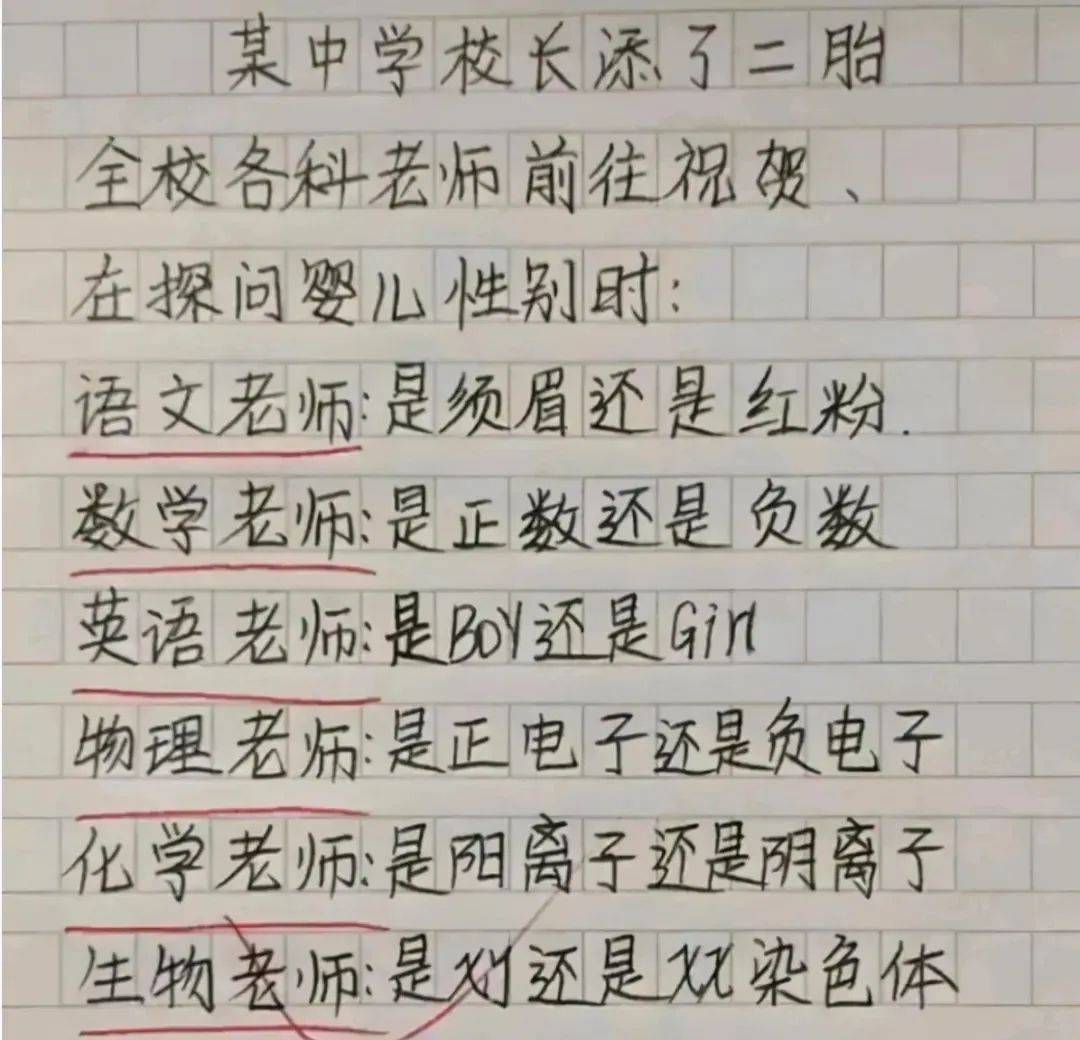 某中学校长添了二胎
全校各科老师前往祝贺、
在探问婴儿性别时:
语文老师:是须眉还是红粉.
数学老师:是正数还是负数
英语老师:是BOY还是Girl
物理老师:是正电子还是负电子
化学老师:是阳离子还是阴离子
生物老师:是XY还是XX染色体